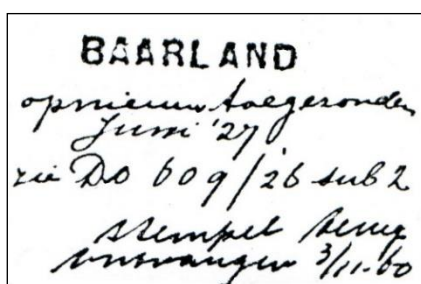 BAARLAND
opnieuw toegezonden
Juni '27
zie DO 609/26 sub 2
stempel terug
ontvangen 3/11-60